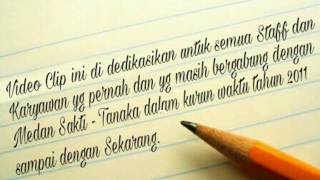 Video Clip ini di dedikasikan untuk semua Staff dan
Karyawan yg pernah dan yg masih bergabung dengan
Medan Sakti - Tanaka dalam kurun waktu tahun 2011
sampai dengan Sekarang.